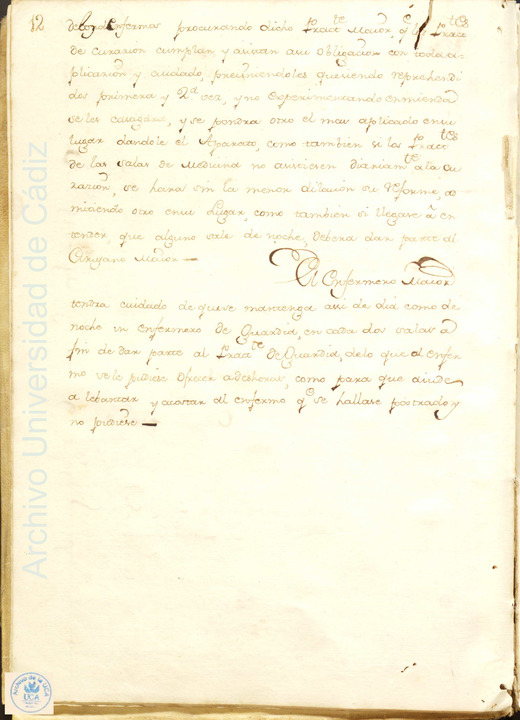 12
de los Enfermos procurando dicho Practte Maior, qe los Practtes
de curazion cumplan y asistan a su Obligazon con toda a-
plicazion y cuidado, previniendoles que siendo reprehendi
dos primera y 2a vez, y no experimentando enmienda
se les castigará, y se pondra otro el mas aplicado en su
lugar dandole el Aparato, como tambien si los Practtes
de las salas de Medicina no asistiesen diariamte a la cu
razion, se hara sin la menor dilacion su reforme, ad
mitiendo otro en su Lugar, como tambien si llegase à en
tender, que alguno sale de noche, debera dar parte al
Cirujano Maior —
El Enfermero Maior
tendra cuidado de que se mantenga asi de dia como de
noche un enfermero de Guardia, en cada dos salas a
fin de dar parte al Practte de Guardia, de lo que al enfer
mo se le pudiese ofrecer a deshoras, como para que aiude
a lebantar y acostar al enfermo qe se hallase postrado y
no pudiese —
Archivo Universidad de Cádiz
Archivo de la UCA
UCA